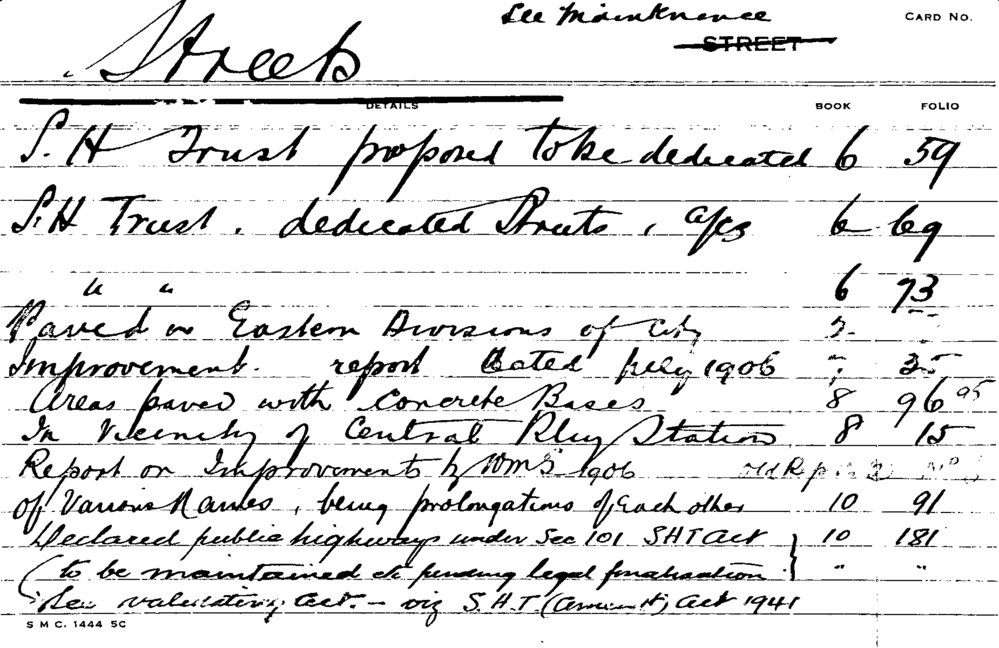 See Maintenance
CARD NO.
STREET
Streets
DETAILS BOOK FOLIO
S. H Trust proposed to be dedicated 6 59
S. H Trust. dedicated Streets, 6 69
" " 6 73
Paved in Eastern Divisions of City
Improvement. report dated July 1906 35
Areas paved with Concrete Bases 8 96 95
In Vicinity of Central Rly Station 8 15
Report on Improvements by WMS 1906 old
of Various Names, being prolongations of Each other 10 91
Declared public highways under Sec 101 SHT Act } 10 181
(to be maintained etc pending legal finalisation } " "
See validating Act. - viz S.H.T (Amm't) Act 1941
S M C. 1444 5C